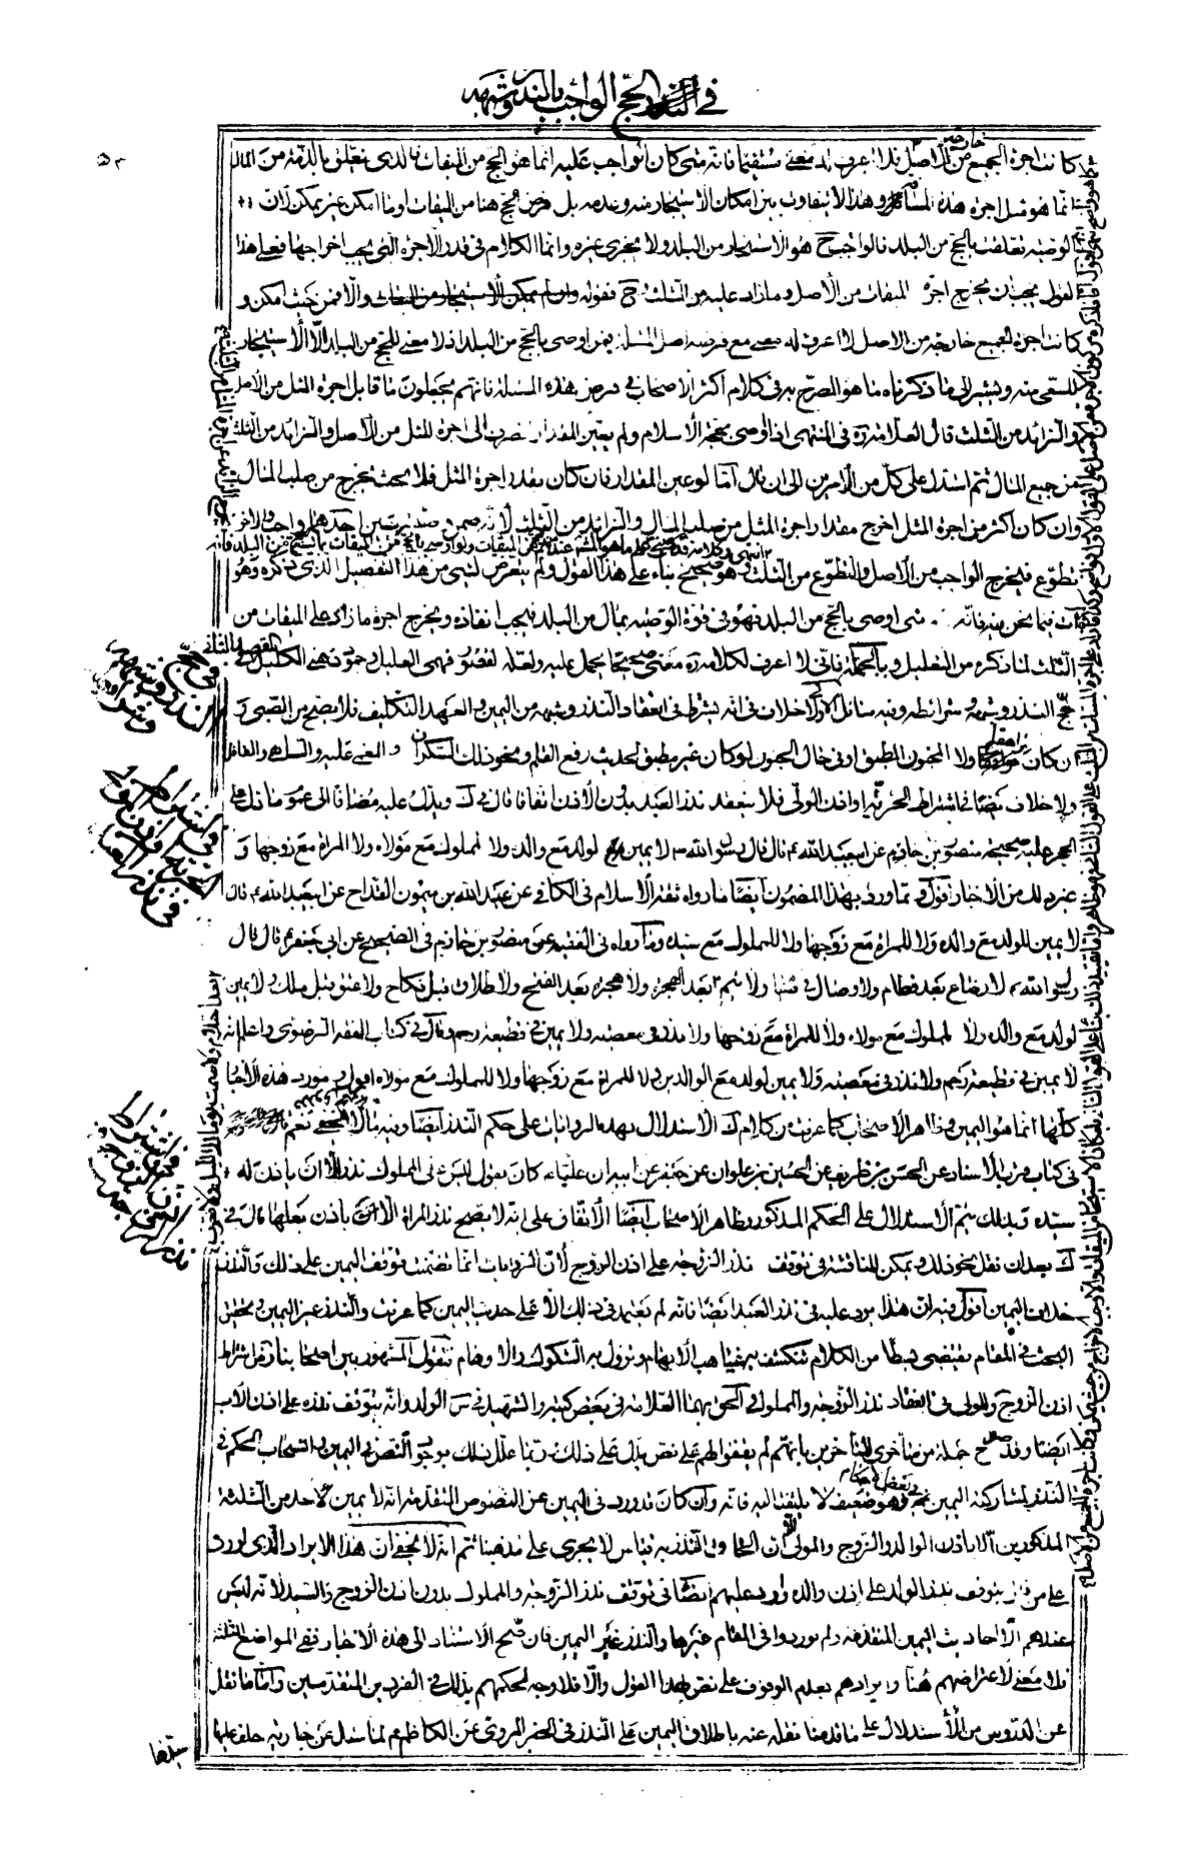 في الحج الواجب بالنذر وشبهه
٥٣
كانت اجرة الجميع من الاصل فلا اعرف له معنى مستقيما فانه متى كان الواجب عليه انما هو الحج من الميقات فالذي تعلق بالذمة من المال
انما هو مثل اجرة هذه المسافة وهذا لا يتفاوت بين امكان الاستيجار منه وعدمه بل فرض الحج هنا من الميقات اولا امكن عنه لان
الوصية تعلقت بالحج من البلد فالواجب ح هو الاستيجار من البلد ولا يجزي غيره وانما الكلام في قدر الاجرة التي يجب اخراجها فعلى هذا
القول يجب ان يخرج اجرة الميقات من الاصل وما زاد عليه من الثلث ح فقوله وان لم يمكن الاستيجار من الميقات والا فمن حيث امكن و
كانت اجرة الجميع خارجة من الاصل لا اعرف له معنى مع فرضه اصل المسئلة فيمن اوصى بالحج من البلد اذ لا معنى للحج من البلد الا الاستيجار
للمسمى منه ويشير الى ما ذكرناه ما هو المصرح به في كلام اكثر الاصحاب في فرض هذه المسئلة فانهم يجعلون ما قابل اجرة المثل من الاصل
والزائد من الثلث قال العلامة ره في المنتهى اذا اوصى بحجة الاسلام ولم يعين المقدار انصرف الى اجرة المثل من الاصل والزائد من الثلث
من جميع المال ثم استدل على كل من الامرين الى ان قال اما لو عين المقدار فان كان بقدر اجرة المثل فلا بحث يخرج من صلب المال
وان كان اكثر من اجرة المثل اخرج مقدار اجرة المثل من صلب المال والزائد من الثلث لانه ضمن وصيته شيئين احدهما واجب والاخر
تطوع فيخرج الواجب من الاصل والتطوع من الثلث وهو صحيح بناء على هذا القول ولم يتعرض لشيء من هذا التفصيل الذي ذكره وهو
آت فيما نحن فيه فانه متى اوصى بالحج من البلد فهو في قوة الوصية بمال من البلد فيجب انفاذه ويخرج اجرة ما زاد على الميقات من
الثلث لما ذكره من التعليل وبالجملة فاني لا اعرف لكلامه ره معنى صحيحا يحمل عليه ولعله لقصور فهمي العليل وجمود ذهني الكليل الفصل الثاني في
حج النذر وشبهه وشرائطه وفيه مسائل الاولى لا خلاف في انه يشترط في انعقاد النذر وشبهه من اليمين والعهد التكليف فلا يصح من الصبي و
ان كان مراهقا ولا المجنون المطبق او في حال الجنون لو كان غير مطبق لحديث رفع القلم ونحو ذلك السكران والمغمى عليه والساهي والغافل
ولا خلاف ايضا في اشتراط الحرية او اذن المولى فلا ينعقد نذر العبد بدون الاذن اتفاقا قال في ك ويدل عليه مضافا الى عموم ما دل على
الحجر عليه صحيحة منصور بن حازم عن ابي عبد الله ع قال قال رسول الله ص لا يمين لولد مع والده ولا لمملوك مع مولاه ولا المراة مع زوجها و
غير ذلك من الاخبار اقول ومما ورد بهذا المضمون ايضا ما رواه ثقة الاسلام في الكافي عن عبد الله بن ميمون القداح عن ابي عبد الله ع قال
لا يمين للولد مع والده ولا للمراة مع زوجها ولا للمملوك مع سيده وما رواه في الفقيه عن منصور بن حازم في الصحيح عن ابي جعفر ع قال قال
رسول الله ص لا رضاع بعد فطام ولا وصال في صيام ولا يتم بعد احتلام ولا صمت يوما الى الليل ولا تعرب بعد الهجرة ولا هجرة بعد الفتح ولا طلاق قبل نكاح ولا عتق قبل ملك ولا يمين
لولد مع والده ولا لمملوك مع مولاه ولا للمراة مع زوجها ولا نذر في معصية ولا يمين في قطيعة رحم وقال في كتاب الفقه الرضوي واعلم انه
لا يمين في قطيعة رحم ولا نذر في معصية ولا يمين لولد مع الوالدين ولا للمراة مع زوجها ولا للمملوك مع مولاه اقول ومورد هذه الاخبار
كلها انما هو اليمين وظاهر الاصحاب كما عرفت من كلام ك الاستدلال بهذه الروايات على حكم النذر ايضا وفيه ما لا يخفى نعم
في كتاب قرب الاسناد عن الحسن بن ظريف عن الحسين بن علوان عن جعفر عن ابيه ان عليا ع كان يقول ليس على المملوك نذر الا ان ياذن له
سيده وبذلك يتم الاستدلال على الحكم المذكور وظاهر الاصحاب ايضا الاتفاق على انه لا يصح نذر المراة الا باذن بعلها قال في
ك بعد ان نقل نحو ذلك ويمكن المناقشة في توقف نذر الزوجة على اذن الزوج لان الروايات انما تضمنت توقف اليمين على ذلك والنذر
خلاف اليمين اقول وفيه ان هذا يرد عليه في نذر العبد ايضا فانه لم يعتمد في ذلك الا على حديث اليمين كما عرفت والنذر غير اليمين وتحقيق
البحث في المقام يقتضي بسطا من الكلام تنكشف به غياهب الابهام وتزول به الشكوك والاوهام فنقول المشهور بين اصحابنا رض اشتراط
اذن الزوج والمولى في انعقاد نذر الزوجة والمملوك والحق بهما العلامة في بعض كتبه والشهيد في س الولد وانه يتوقف نذره على اذن الاب
ايضا وقد صرح جملة من متأخري المتأخرين بانهم لم يقفوا لهم على نص يدل على ذلك وربما علل ذلك بوجود النص في اليمين وانسحاب الحكم في
النذر لمشاركته اليمين في بعض الاحكام وهو ضعيف لا يلتفت اليه فانه وان كان قد ورد في اليمين عن النصوص المتقدمة انه لا يمين لاحد من الثلثة
المذكورين الا باذن الوالد والزوج والمولى الا ان الحاق النذر به قياس لا يجري على مذهبنا ثم انه لا يخفى ان هذا الايراد الذي اورد
على من قال بتوقف نذر الولد على اذن والده وارد عليهم ايضا في توقف نذر الزوجة والمملوك بدون اذن الزوج والسيد لانه ليس
عندهم الا احاديث اليمين المتقدمة ولم يوردوا في المقام غيرها والنذر غير اليمين فان صح الاستناد الى هذه الاخبار ففي المواضع الثلثة
فلا معنى لاعتراضهم هنا وايرادهم بعدم الوقوف على نص بهذا القول والا فلا وجه لحكمهم بذلك في الفردين المتقدمين واما ما نقل
عن الدروس من الاستدلال على ما قدمنا نقله عنه باطلاق اليمين على النذر في الخبر المروي عن الكاظم ع لما سئل عن جارية حلف عليها
سيدها
في حج النذر وشبهه وشرائطه
في اشتراط الحرية واذن المولى في نذر العبد
في اشتراط اذن الزوج في نذر الزوجة